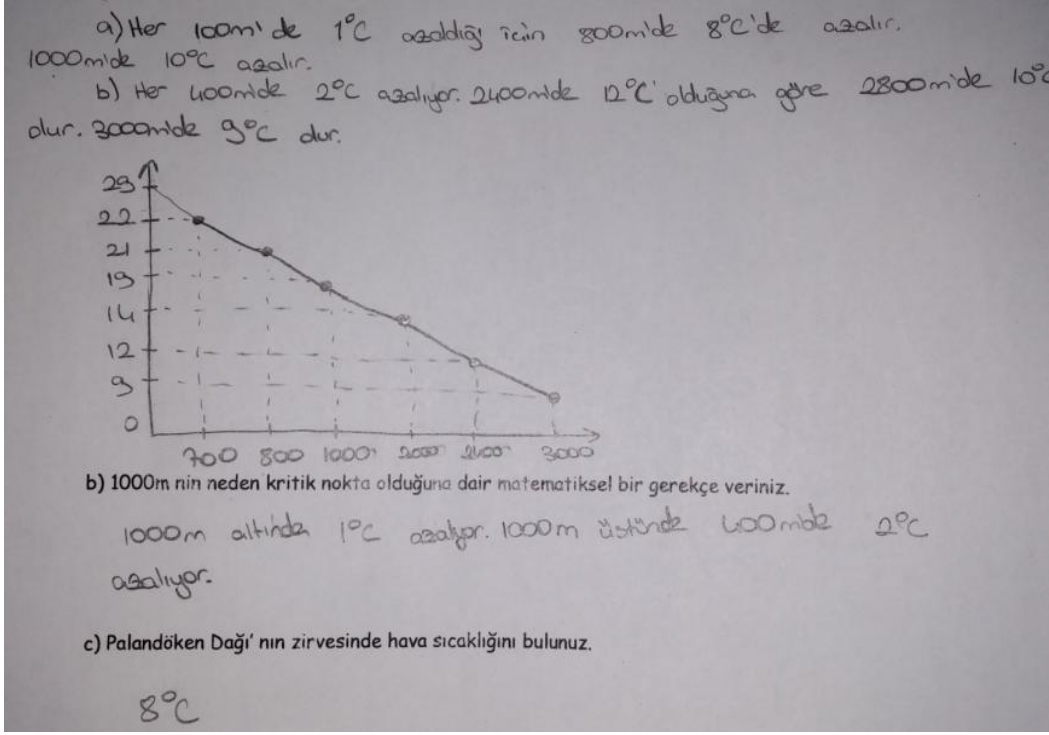 a) Her 100m'de 1°C azaldığı için 800m'de 8°C'de azalır.
1000m'de 10°C azalır.
b) Her 400m'de 2°C azalıyor. 2400m'de 12°C olduğuna göre 2800m'de 10°C
olur. 3000m'de 9°C dur.
29
22
21
19
14
12
9
0
700 800 1000 2000 2400 3000
b) 1000m nin neden kritik nokta olduğuna dair matematiksel bir gerekçe veriniz.
1000m altında 1°C azalıyor. 1000m üstünde 400m'de 2°C
azalıyor.
c) Palandöken Dağı' nın zirvesinde hava sıcaklığını bulunuz.
8°C